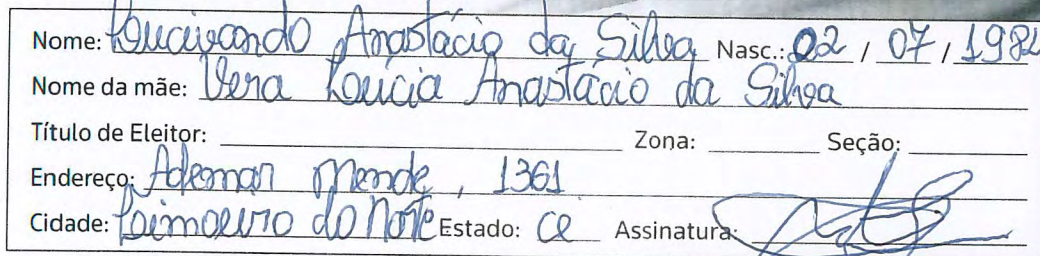 Nome: Loucivando Anastácio da Silva Nasc.: 02 / 07 / 1982
Nome da mãe: Vera Loúcia Anastácio da Silva
Título de Eleitor: Zona: Seção:
Endereço: Ademar Mende, 1361
Cidade: Loimoeiro do Norte Estado: Ce Assinatura: